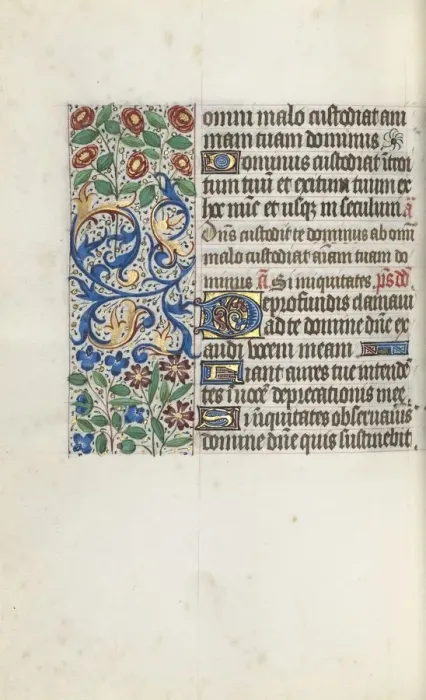 omni malo custodiat ani
mam tuam dominus
Dominus custodiat ītroi
tum tuū et exitum tuum ex
hoc nūc et usq̃ in seculum. a͞
Dn̄s custodit te dominus ab omī
malo custodiat aīam tuam do
minus a͞. Si iniquitates. p̄s dd̄
De profundis clamaui
ad te domine dn̄e ex
audi vocem meam
Fiant aures tue intendē
tes in vocē deprecationis mee.
Si īiquitates obseruaueris
domine dn̄e quis sustinebit.